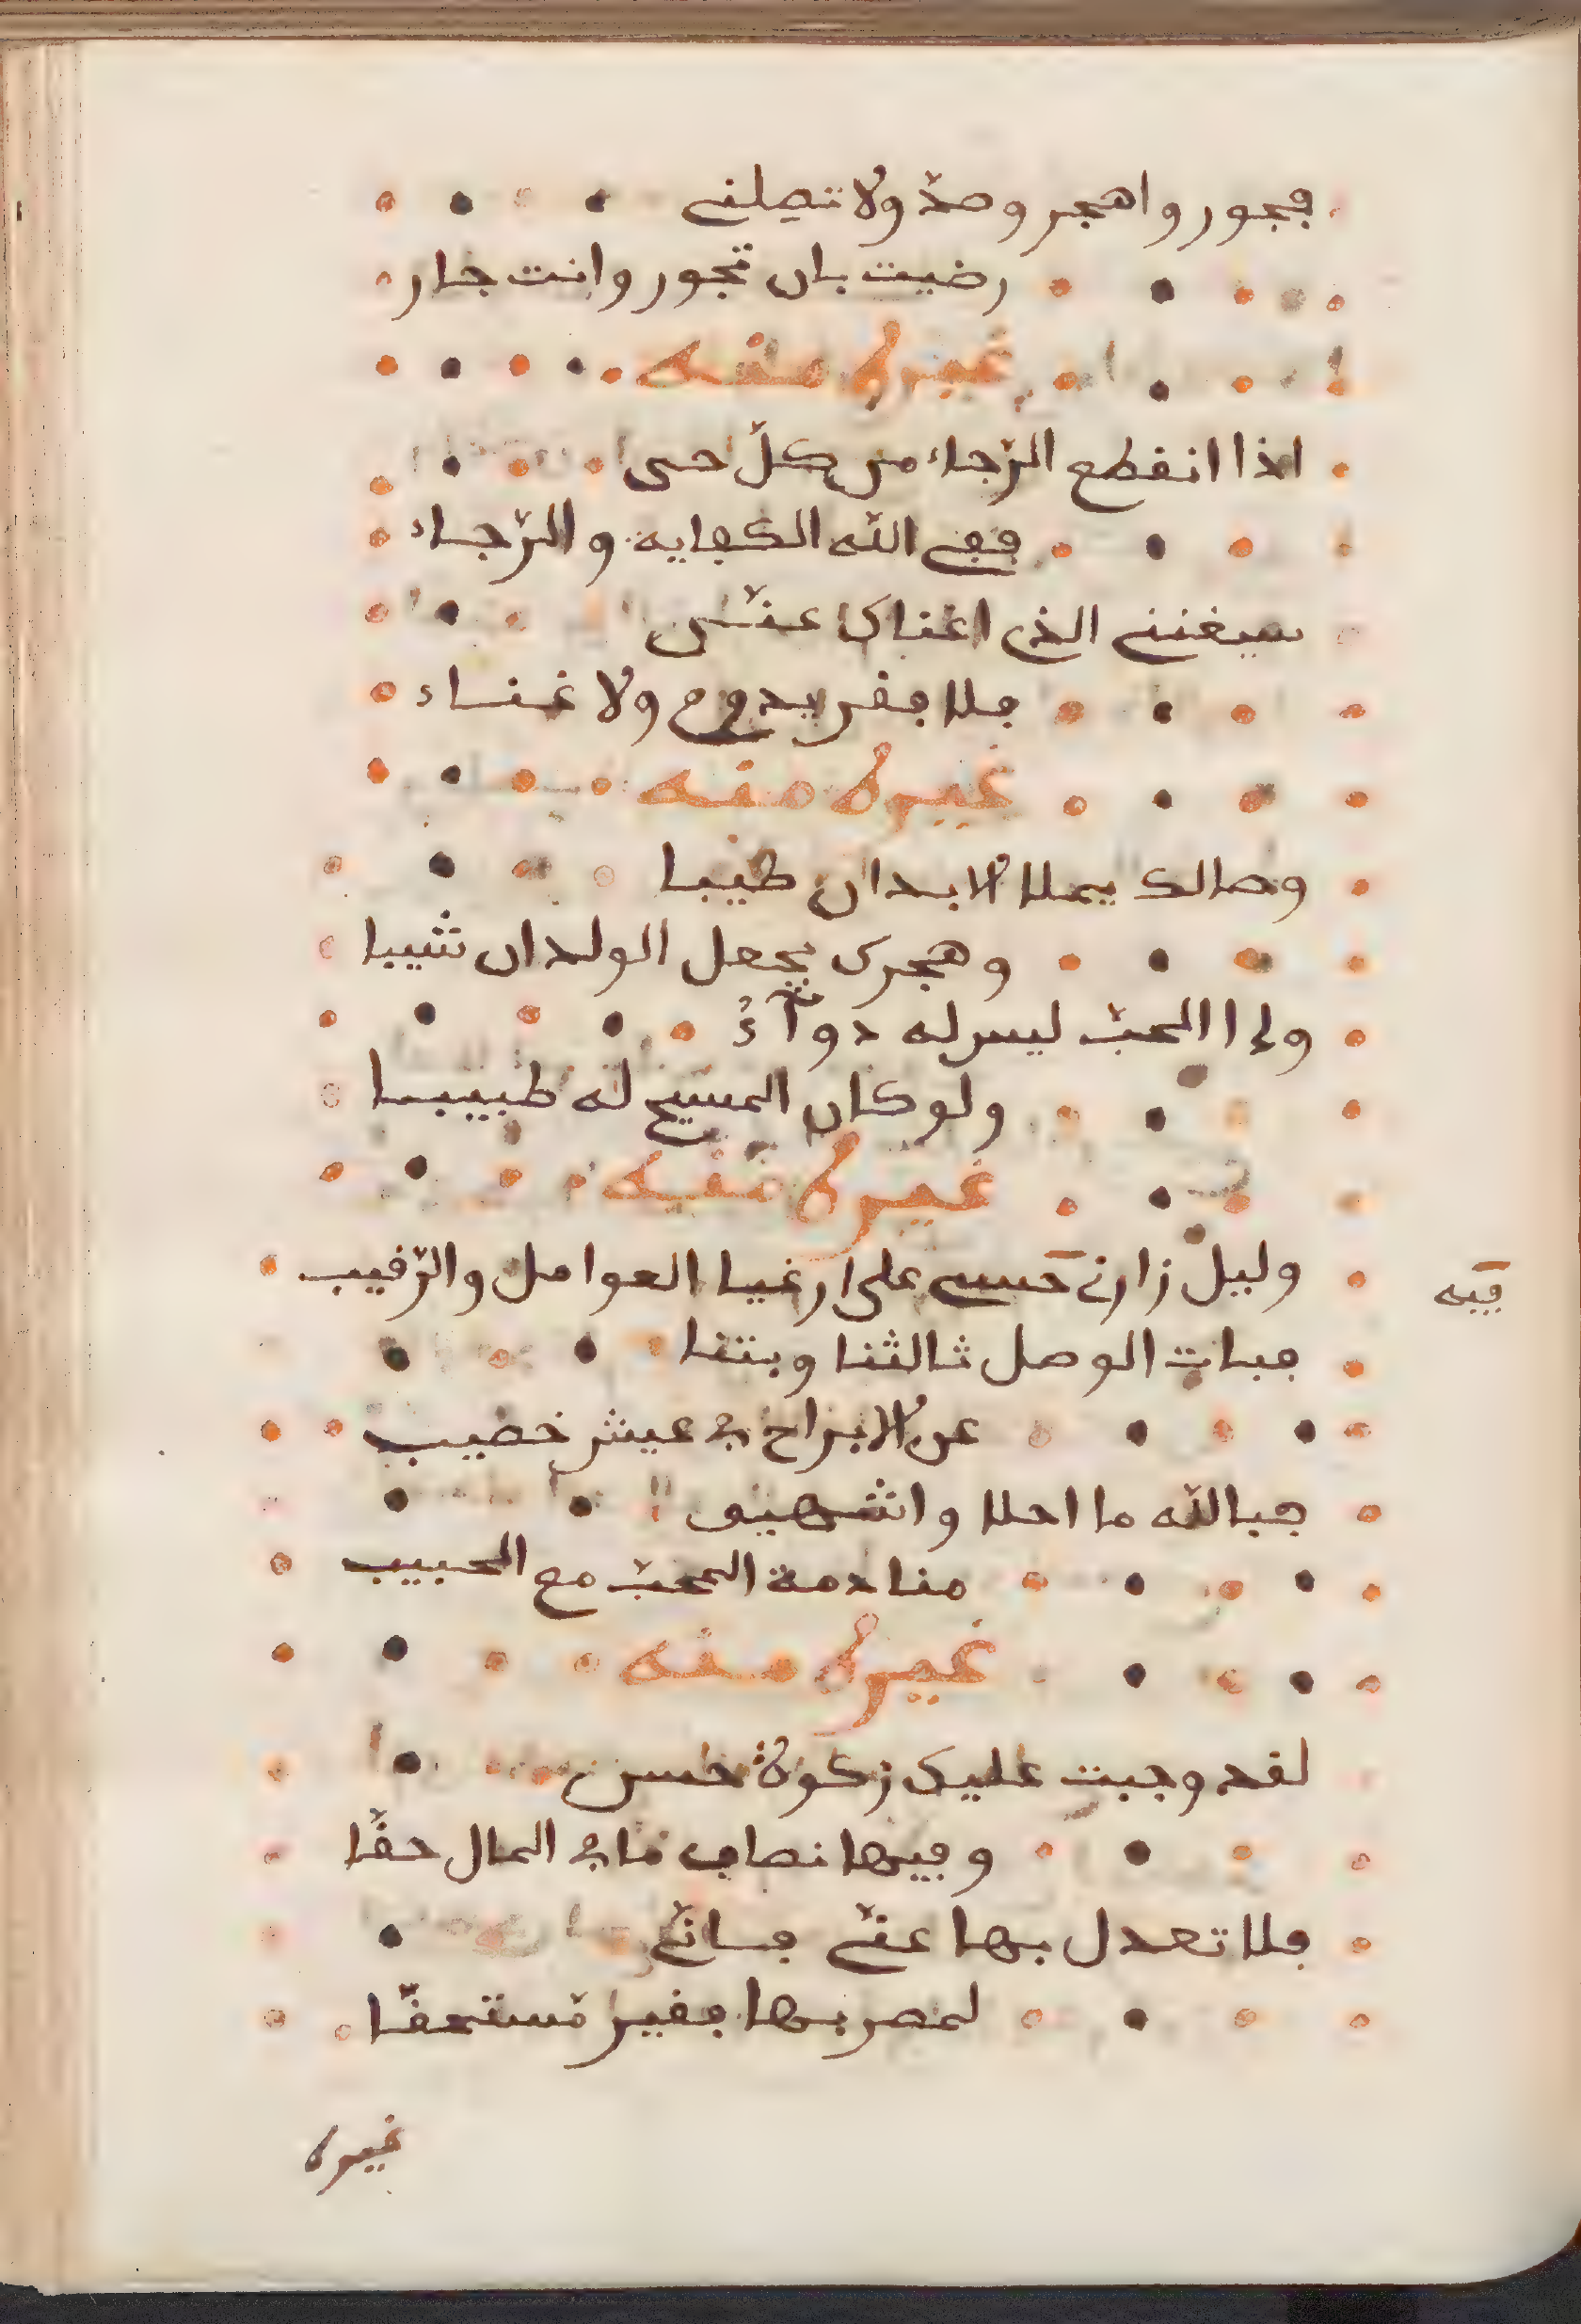 فجور واهجر وصدّ ولا تصلني
رضيت بان تجور وانت جار
غيره منه
اذا انقطع الرّجاء من كلّ حي
ففي الله الكفاية والرّجاء
سيغنني الذي اغناك عنّي
فلا فقر يدوم ولا غناء
غيره منه
وصالك يملا الابدان طيبا
وهجرك يجعل الولدان شيبا
المحبّ ليس له دوآءُ
ولو كان المسيح له طبيبا
غيره منه
وليل زارني على ارغيا العوامل والرّقيب
فيه
فبات الوصل ثالثنا وبتنا
عن الابراح في عيش خصيب
فبالله ما احلا واشهى
منادمة المحبّ مع الحبيب
غيره منه
لقد وجبت عليك زكوة حسن
وفيها نصاب ما في المال حقّا
فلا تعدل بها عنّي فانّي
لمصر بها فقير مستحقّا
غيره